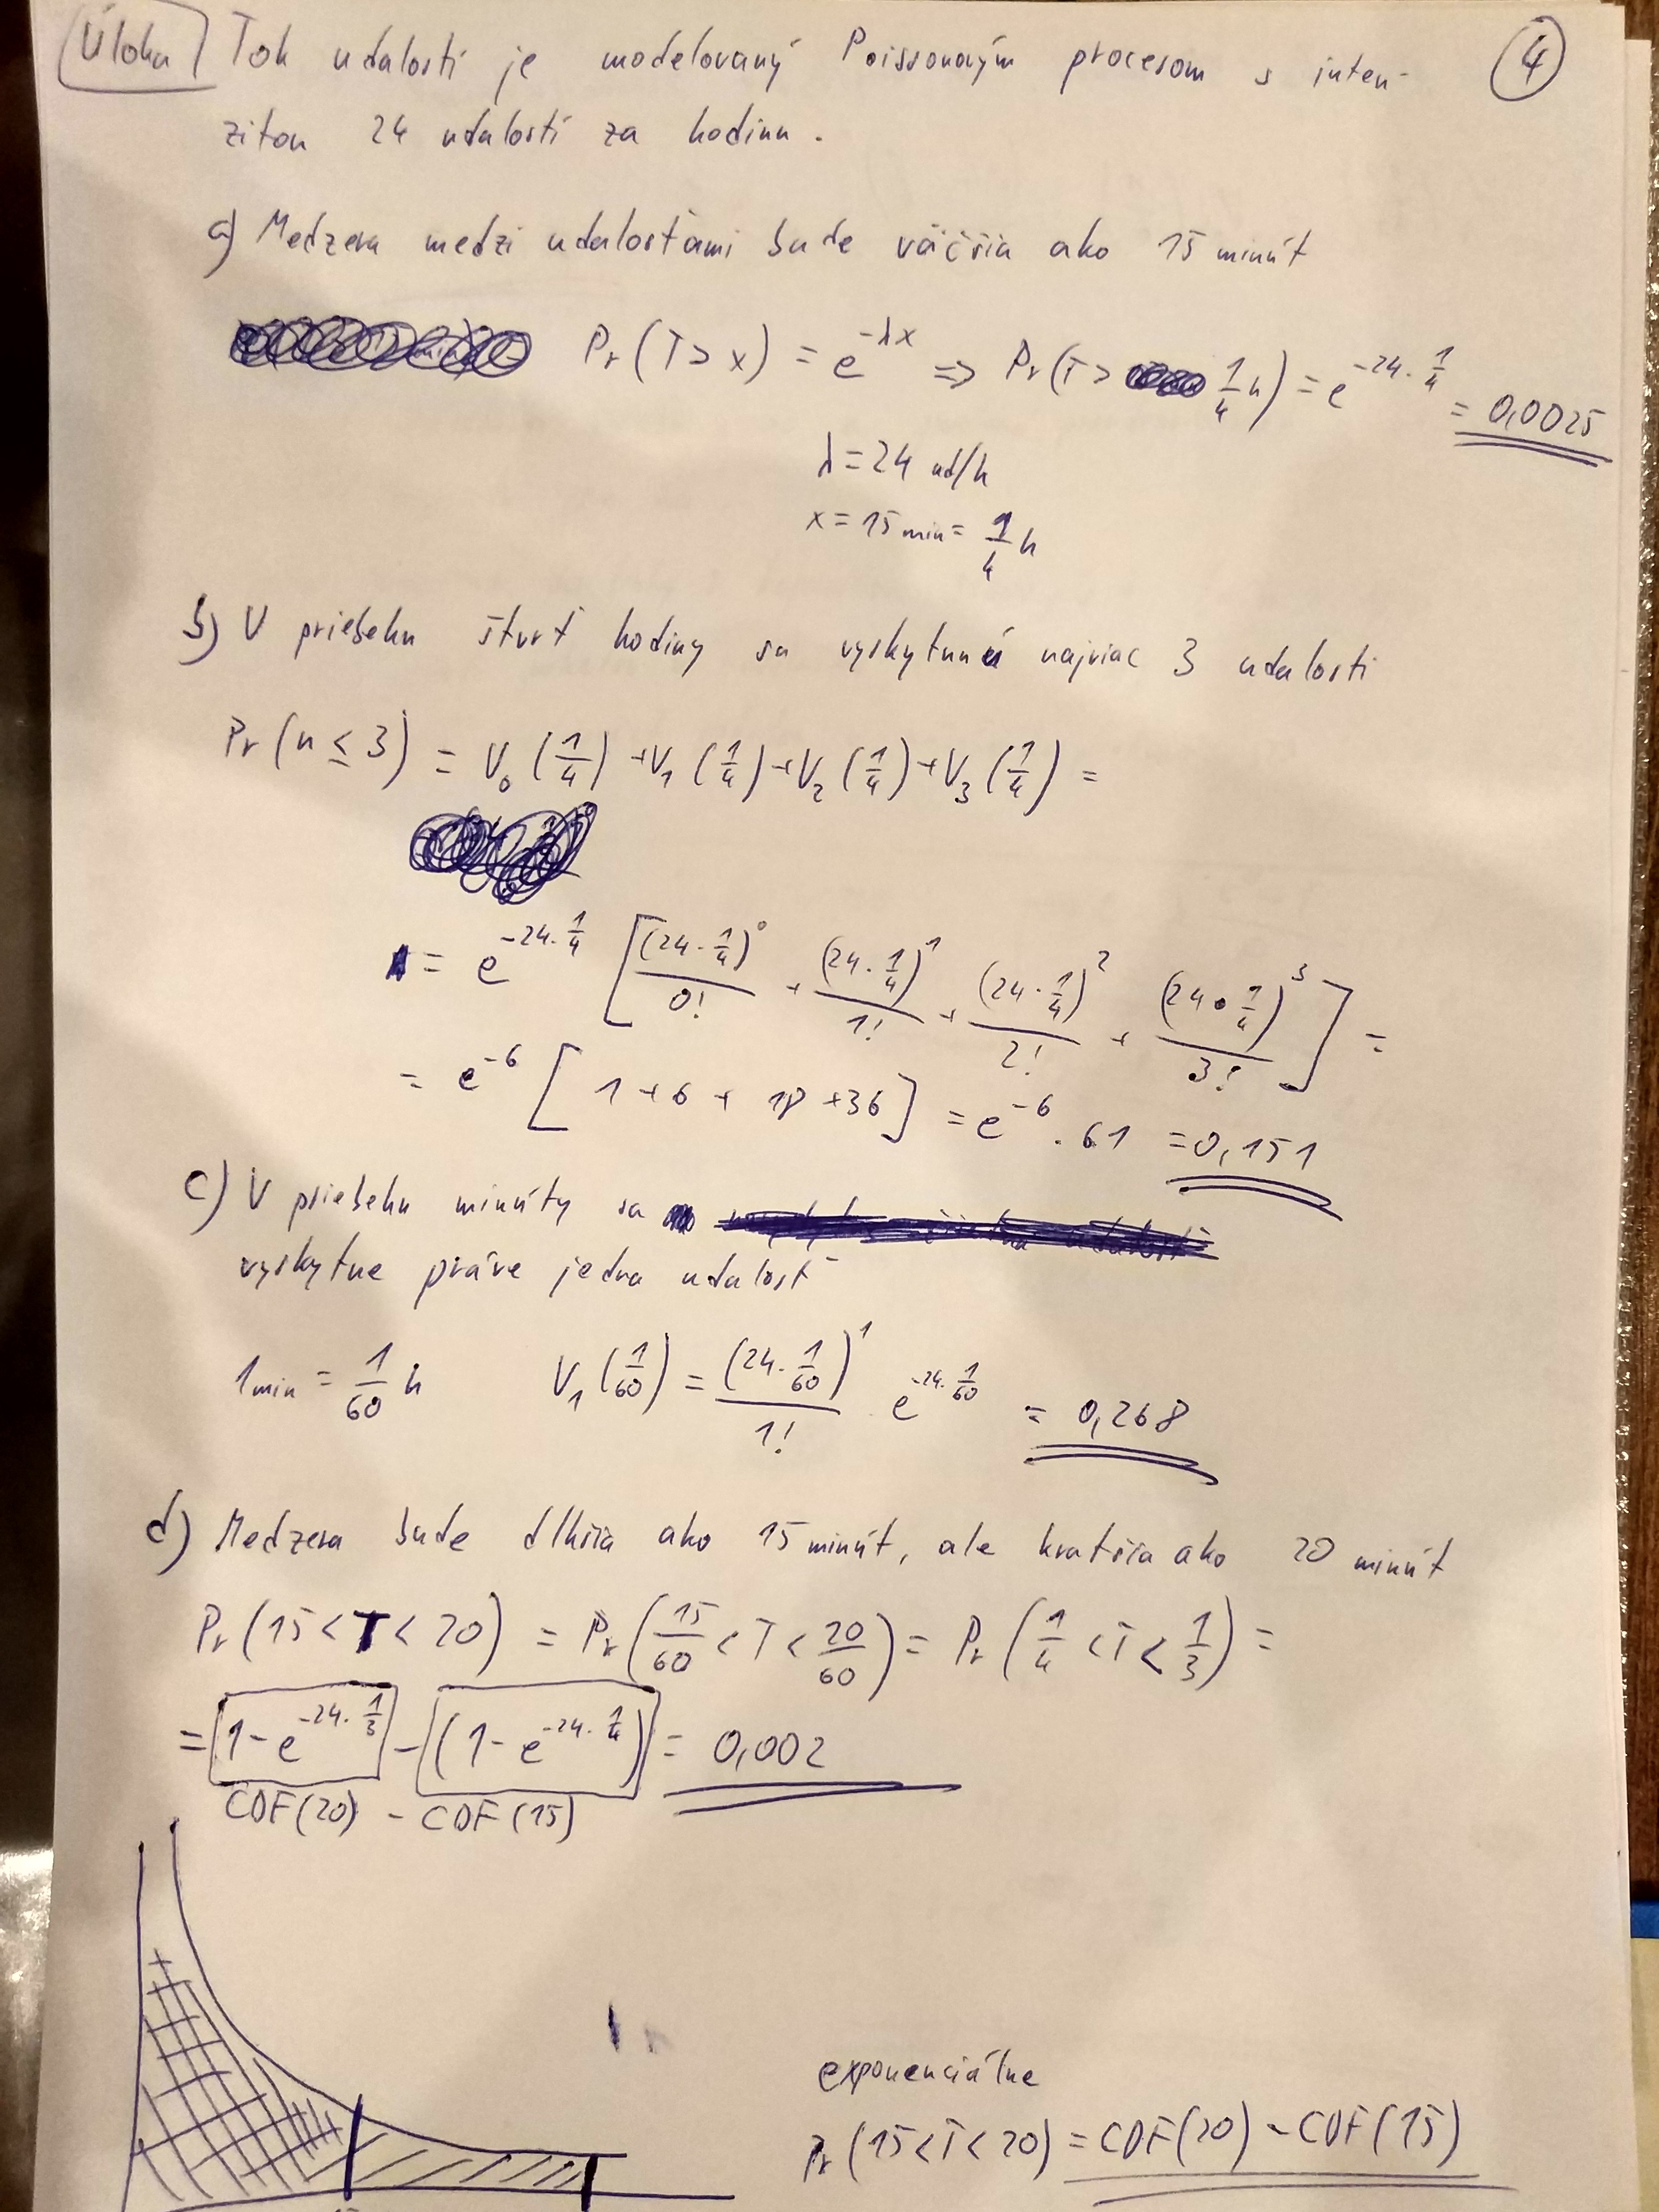 Úloha Tok udalostí je modelovaný Poissonovým procesom s inten- 4
zitou 24 udalostí za hodinu.
a) Medzera medzi udalosťami bude väčšia ako 15 minút
Pr(T > x) = e^{-λx} => Pr(T > 1/4 h) = e^{-24·1/4} = 0,0025
λ = 24 ud/h
x = 15 min = 1/4 h
b) V priebehu štvrť hodiny sa vyskytnú najviac 3 udalosti
Pr(n ≤ 3) = V₀(1/4) + V₁(1/4) + V₂(1/4) + V₃(1/4) =
= e^{-24·1/4} [(24·1/4)^0/0! + (24·1/4)^1/1! + (24·1/4)^2/2! + (24·1/4)^3/3!] =
= e^{-6} [1 + 6 + 18 + 36] = e^{-6} . 61 = 0,151
c) V priebehu minúty sa
vyskytne práve jedna udalosť
1 min = 1/60 h V₁(1/60) = (24·1/60)^1/1! . e^{-24·1/60} = 0,268
d) Medzera bude dlhšia ako 15 minút, ale kratšia ako 20 minút
Pr(15 < T < 20) = Pr(15/60 < T < 20/60) = Pr(1/4 < T < 1/3) =
= 1 - e^{-24·1/3} - (1 - e^{-24·1/4}) = 0,002
CDF(20) - CDF(15)
exponenciálne
Pr(15 < T < 20) = CDF(20) - CDF(15)